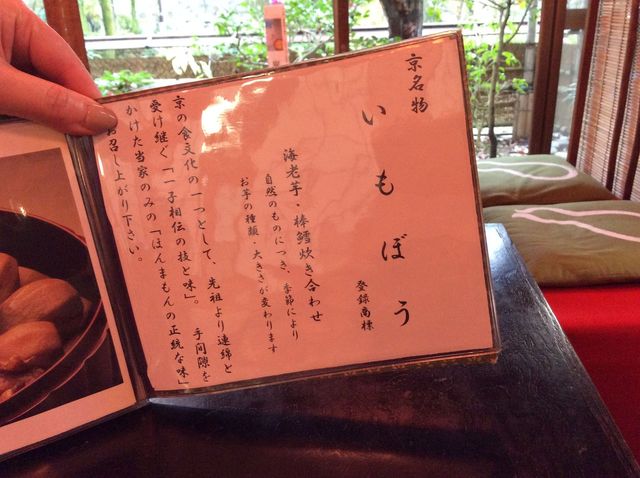 京名物
いもぼう
登録商標
海老芋・棒鱈炊き合わせ
自然のものにつき、季節により
お芋の種類・大きさが変わります
京の食文化の一つとして、先祖より連綿と
受け継ぐ「一子相伝の技と味」。手間隙を
かけた当家のみの「ほんまもんの正統な味」
お召し上がり下さい。